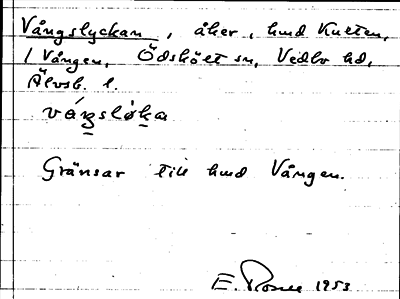 Vångslyckan, åker, hmd Kulten,
1 Vången, Ödskölt sn, Vedbo hd,
Älvsb. l.
vaŋsløkan
Gränsar till hmd Vången.
E. 1953